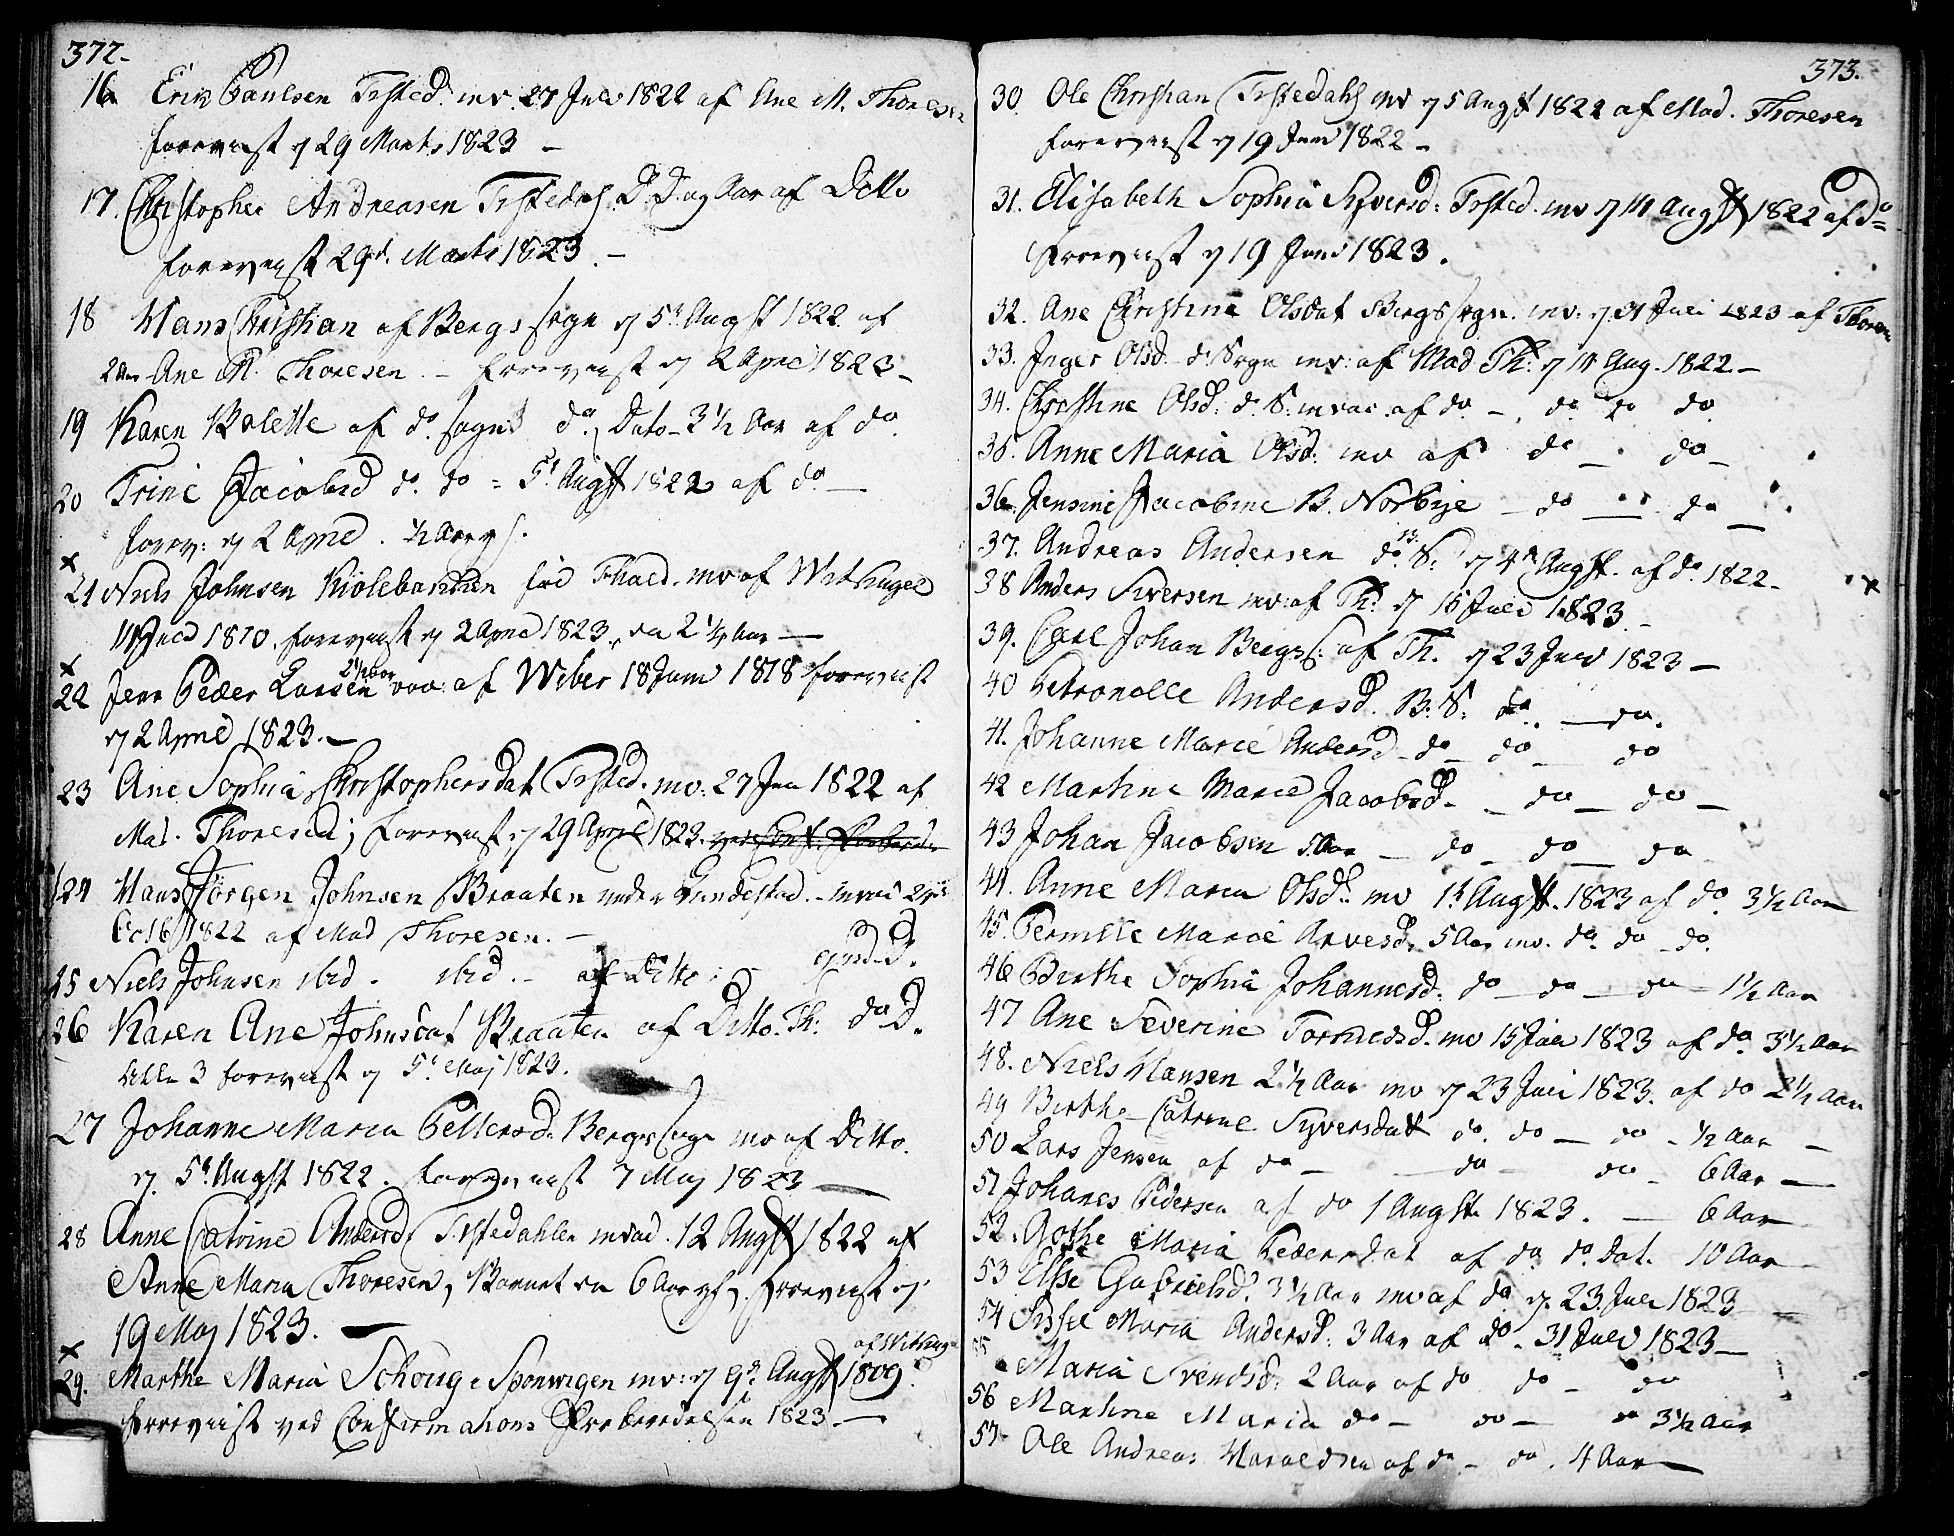 372.
16 Erik Paulsen Tisted. inv. 27 Juli 1822 af Ane M. Thoresen
forevist d 29 Marts 1823 —
17. Christopher Andreasen Tistedahl D. D. og Aar af Ditto
forevist 29d. Marts 1823. —
18 Hans Christian af Bergs sogn d 5t Augst 1822 af
2 Aar Ane M. Thoresen. — forevist d 2 April 1823 —
19 Karen Bolette af do. sogn do. Dato — 3 1/2 Aar af do.
20 Trine Jacobsd do. do = 5t Augst 1822 af do —
forev: d 2 April. 1/2 Aar
x
21 Niels Johnsen Kiolebakken inv af
Juli 1810. forevist d 2 April 1823, da 2 1/4 Aar —
x
2 1/2 aar
22 Jens Peder Larsen vac: af Weber 18 Juni 1818 forevist
d 2 April 1823. —
23 Ane Sophia Christophersdat Tisted. inv. 27 Jun 1822 af
Mad. Thoresen; forevist d 29 April 1823.
124 Hans Jørgen Johnsen Braaten under Gundestad. — invac 29de
Oct 1822 af Mad Thoresen. —
25 Niels Johnsen ibid. ibid. — af Ditto: — ejusd. D.
26 Karen Ane Johnsdat Braaten af Ditto. Th: do D.
Alle 3 forevist d 5t Maj 1823.
27 Johanne Maria Pettersd. Bergs sogn inv af Ditto.
d. 5t Augst 1822. forevist 7 Maj 1823 —
28 Anne Catrine Andersd Tistedahlen invac. 12 Augst 1822 af
Anne Maria Thoresen, Barnet da 6 Aar gl. forevist d
19 Maj 1823. —
x
29. Marthe Maria Schoug Sponvigen inv: d 9d Augst 1809.
forevist ved Confirmations Forberedelsen 1823. —
373.
30. Ole Christian Tistedahls inv d 5 Augst 1822 af Mad. Thoresen
forevist d 19 Juni 1822 —
31. Elisabeth Sophia Syversd: Tisted. inv d 14 Augst 1822 af do
forevist d 19 Juni 1823.
32. Ane Christina Olsdat Bergs sogn. inv: d 31 Juli 1823 af Thoresen
33. Inger Olsd. d. Sogn inv: af Mad Th. d 14 Aug. 1822 —
34. Christine Olsd: d. S. invac. af do —. do do do.
35. Anne Maria Olsd: inv af do — do —
36. Jensine Jacobine B. Norbye — do — do —
37. Andreas Andersen do. S: d 4de Augst. af do. 1822 —
38 Anders Siversen inv: af Th: d 15 Juli 1823. —
39. Carl Johan Bergs S: af Th. d 23 Juli 1823 —
40 Petronelle Andersd. B. S: do. — do.
41. Johanne Marie Andersd — do — do — do
42 Martine Marie Jacobsd. — do — do —
43 Johan Jacobsen 5 Aar — do — do — do
44. Anne Maria Olsd. inv 1t Augst. 1823 af do. 3 1/2 Aar
45. Pernille Marie Arvesd. 5 Aar inv. do. do — do.
46 Birthe Sophia Johannesd. do — do — do — 1 1/2 Aar
47 Ane Severine Tormodsd. inv 15 Juli 1823 af do. 3 1/2 Aar
48. Niels Hansen 2 1/2 Aar inv d 23 Juli 1823. af do 2 1/2 Aar
49 Birthe Catrine Syversdatt do. do — do — 1/2 Aar —
50 Lars Jensen af do — — do — do — 6 Aar —
51 Johanes Pedersen af do 1 Augst. 1823. — 6 Aar
52. Gothe Maria Pedersdat af do do. Dat. 10 Aar
53 Elise Gabrielsd. 3 1/2 Aar inv af do d. 23 Juli 1823 —
54 Sissel Maria Andersd. 3 Aar af do. 31 Juli 1823 —
55 Maria Svendsd. 2 Aar af do do — do
56 Martine Maria do — do — do 3 1/2 Aar
57 Ole Andreas Haraldsen af do — do. 4 Aar —